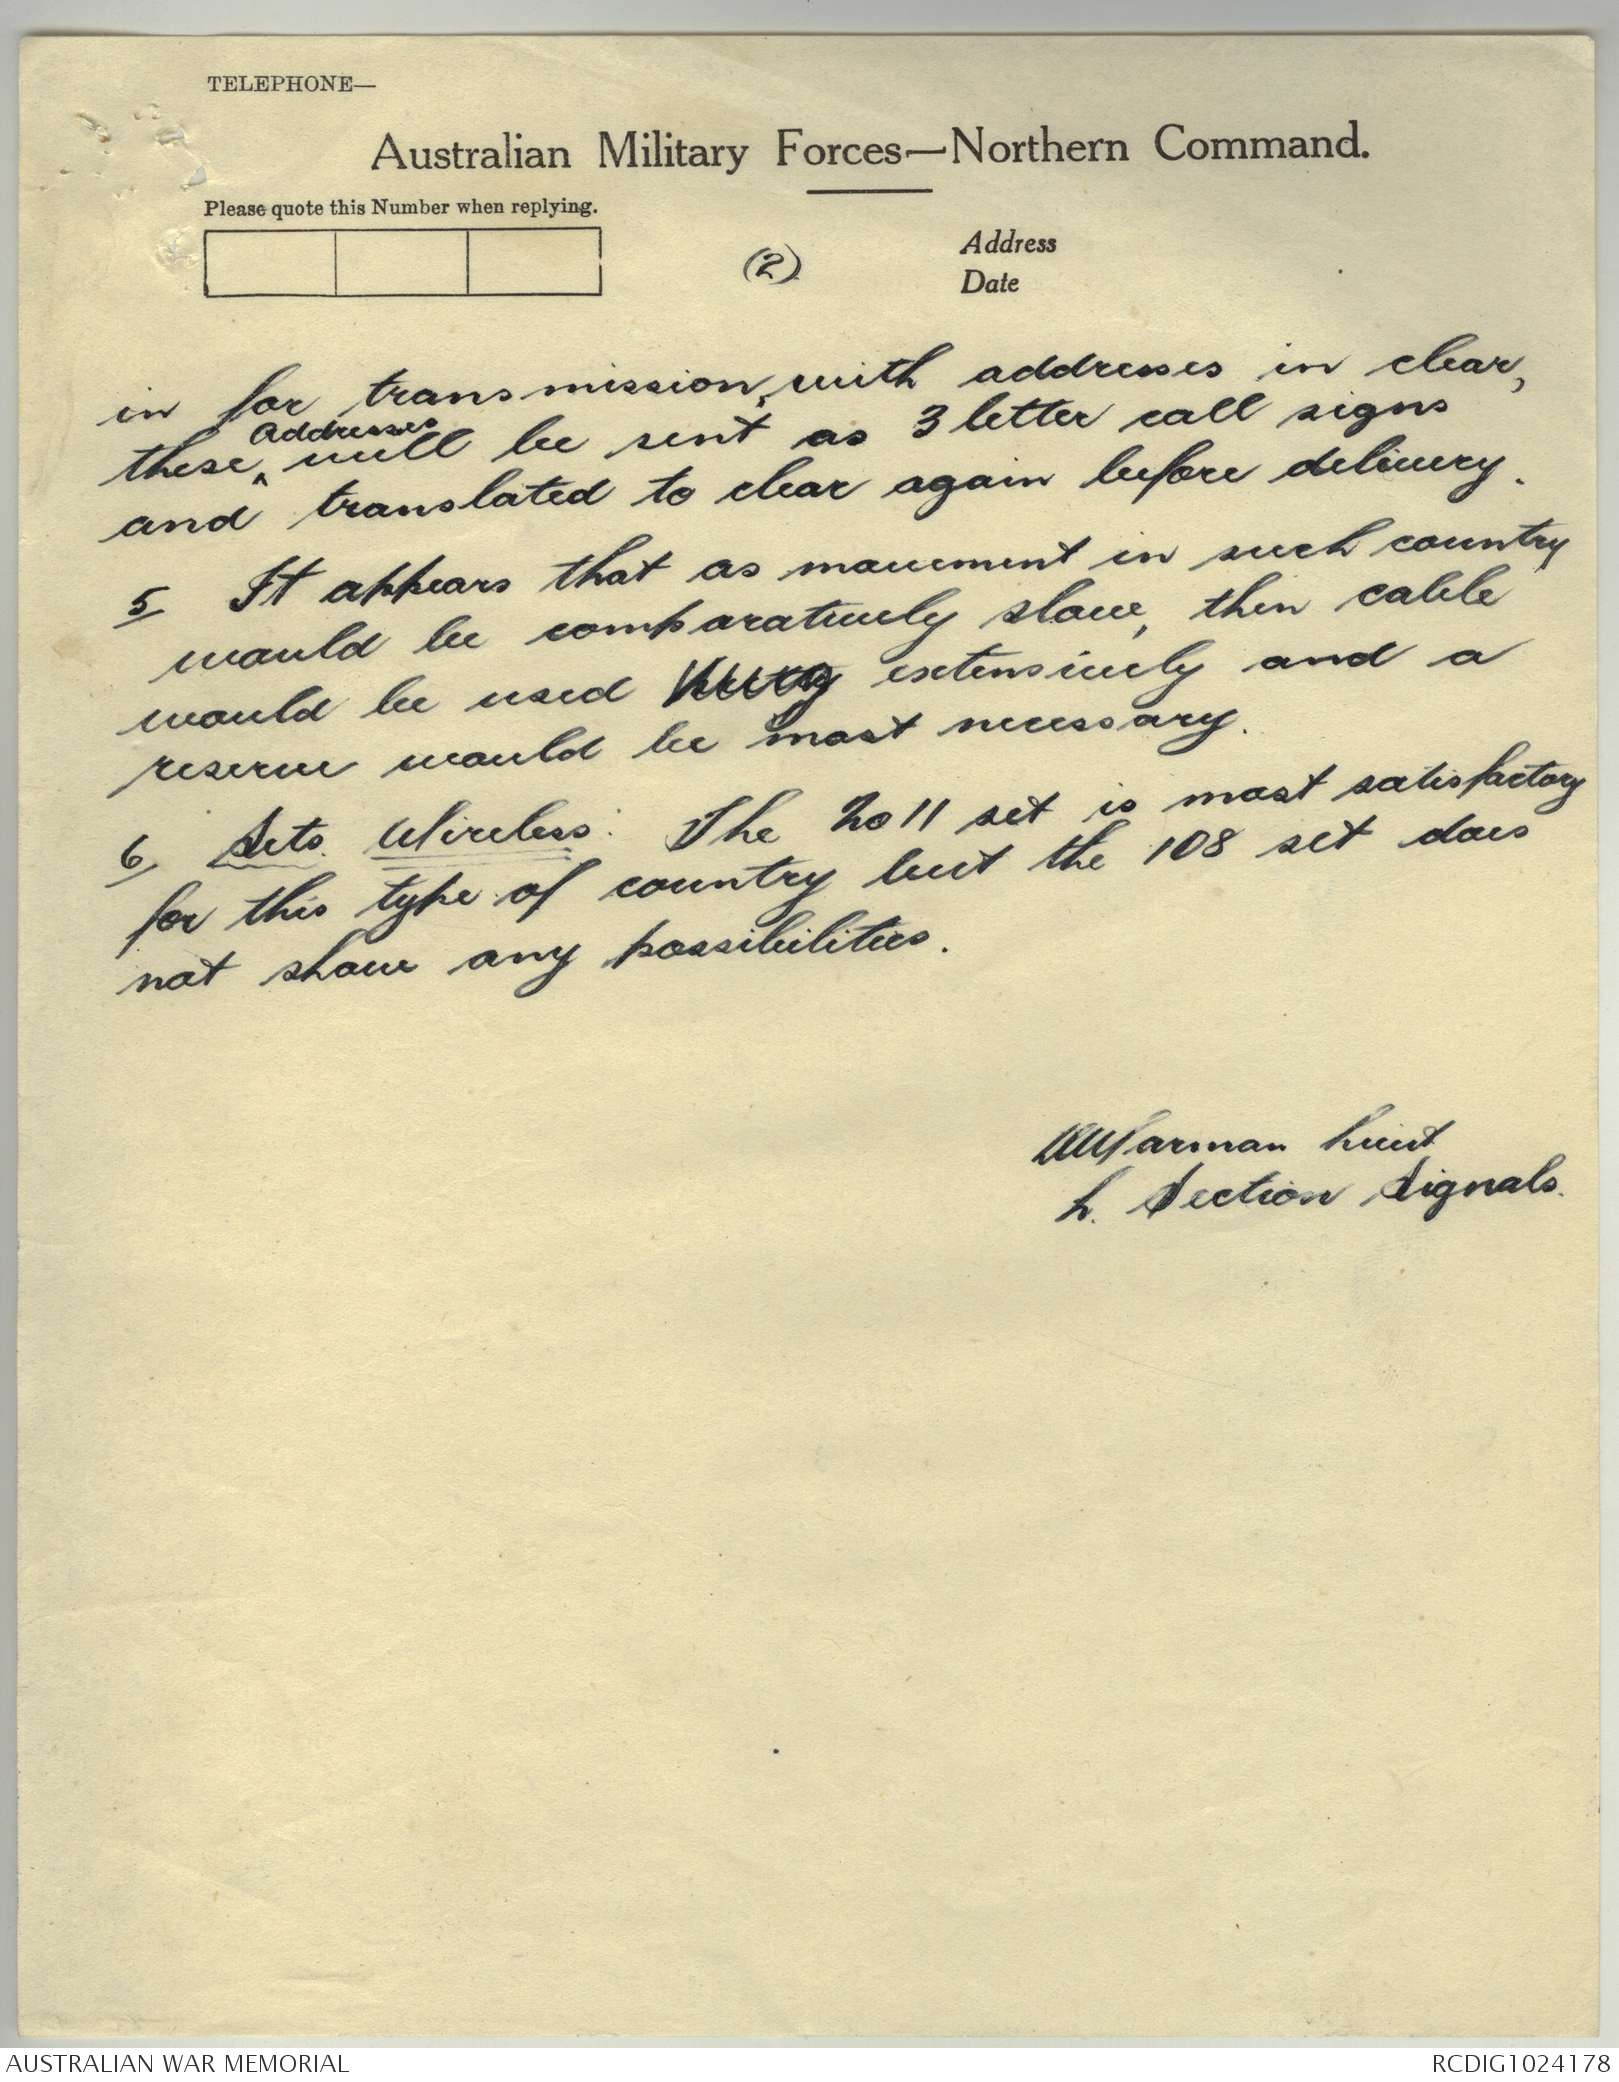 TELEPHONE—
Australian Military Forces—Northern Command.
Please quote this Number when replying.
(2)
Address
Date
in for transmission, with addresses in clear,
these addresses will be sent as 3 letter call signs
and translated to clear again before delivery.
5 It appears that as movement in such country
would be comparatively slow, then cable
would be used extensively and a
reserve would be most necessary.
6 Sets Wireless: The No 11 set is most satisfactory
for this type of country but the 108 set does
not show any possibilities.
Lieut
L. Section Signals.
AUSTRALIAN WAR MEMORIAL
RCDIG1024178